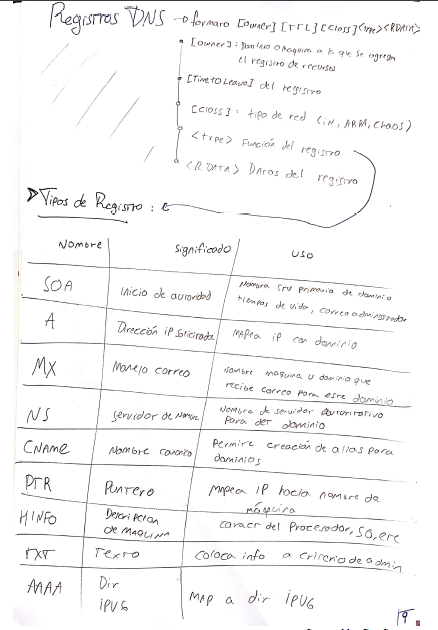 Registros DNS → formato [owner] [TTL] [Class] <type> <RDATA>
[owner] : Dominio o maquina a lo que se agregan
el registro de recursos
[Time to Leave] del registro
[Class] : tipo de red (iN, ARPA, Chaos)
<type> Función del registro
<RDATA> Datos del registro
Tipos de Registro :
Nombre Significado USO
SOA Inicio de autoridad Nombra srv primario de dominio
tiempos de vida, correo administrador
A Dirección ip solicitada Mapea ip con dominio
MX Manejo correo Nombre maquina u dominio que
recibe correo para este dominio
NS Servidor de Nombre Nombre de servidor autoritativo
para det dominio
CNAME Nombre canonico Permite creación de alias para
dominios
PTR Puntero Mapea IP hacia nombre de
máquina
HINFO Descripcion
de MAQUINA caract del Procesador, SO, etc
TXT Texto Coloca info a criterio de admin
AAAA Dir
IPV6 MAP a dir IPV6
9